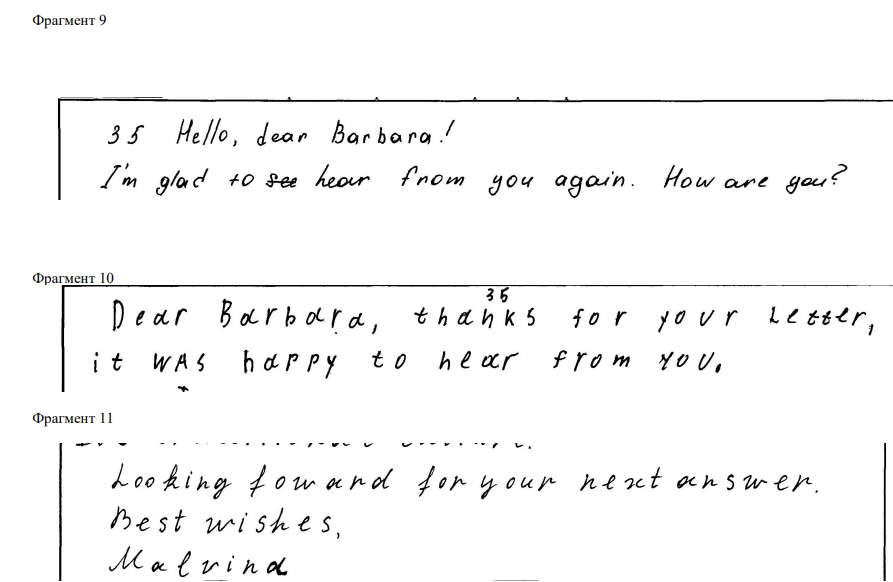 Фрагмент 9
35 Hello, dear Barbara!
I'm glad to see hear from you again. How are you?
Фрагмент 10
35
Dear Barbara, thanks for your letter,
it was happy to hear from you.
Фрагмент 11
Looking foward for your next answer.
Best wishes,
Malvina